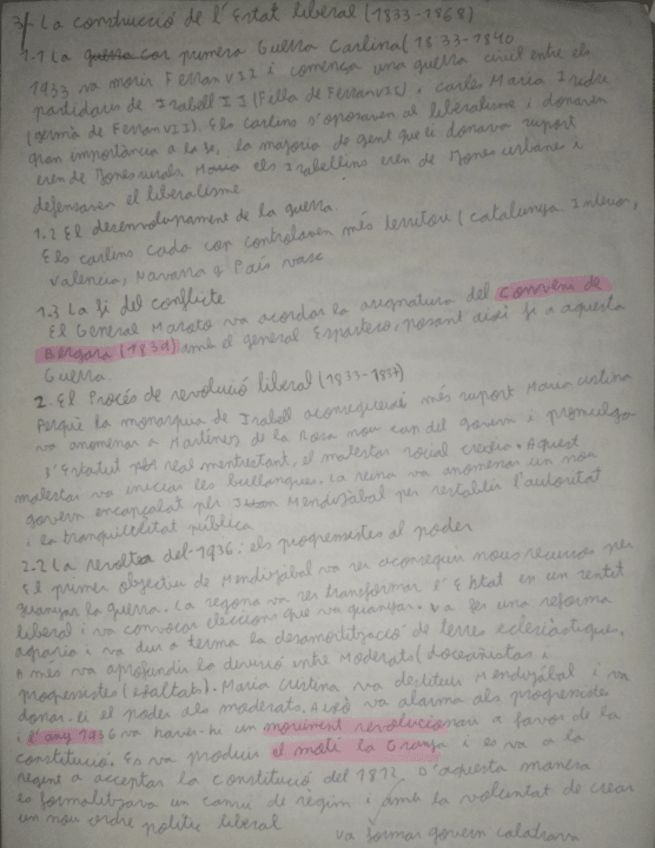 3/ La construcció de l'Estat liberal (1833-1868)
1.1 La primera Guerra Carlina (1833-1840
1933 va morir Ferran VII i comença una guerra civil entre els
partidaris de Isabell II (Filla de Ferran VII), Carles Maria Isidre
(germà de Ferran VII). Els carlins s'oposaven al liberalisme i donaven
gran importància a la fe, la majoria de gent que li donava suport
eren de zones rurals els Isabellins eren de zones urbanes i
defensaven el liberalisme
1.2 El desenvolupament de la guerra
Els carlins cada cop controlaven més territori (Catalunya Interior,
Valencia, Navarra i País vasc
1.3 La fi del conflicte
El General Maroto va acordar la asignatura del Conveni de
Bergara (1839) amb el general Espartero, posant així fi a aquesta
Guerra.
2. El Procés de revolució liberal (1933-1837)
Perquè la monarquia de Isabell aconsegueixi més suport Maria cristina
va anomenar a Martinez de la Rosa nou cap del govern i promulga
l'Estatut real mentrestant, el malestar social creixia. Aquest
malestar va iniciar les bullangues. La reina va anomenar un nou
govern encapçalat per Mendizábal per restablir l'autoritat
i la tranquilitat pública
2.2 La revolta del 1936: els progressistes al poder
El primer objectiu de Mendizábal va ser aconseguir nous recursos per
guanyar la guerra. La segona va ser transformar l'Estat en un sentit
liberal i va convocar eleccions que va guanyar. Va fer una reforma
agraria i va dur a terma la desamortització de terres eclesiastiques.
A més va aprofundir la devisió entre Moderats (doceañistas i
progressistes (exaltats). Maria Cristina va destituir Mendizábal i va
donar-li el poder als moderats. Això va alarma als progresistes
i l'any 1936 va haver-hi un moviment revolucionari a favor de la
constitució. Es va produir el motí la Granja i es va a la
regent a acceptar la constitució del 1812. D'aquesta manera
es formalitzava un canvi de règim i amb la voluntat de crear
un nou ordre politic liberal
va formar govern calatrava